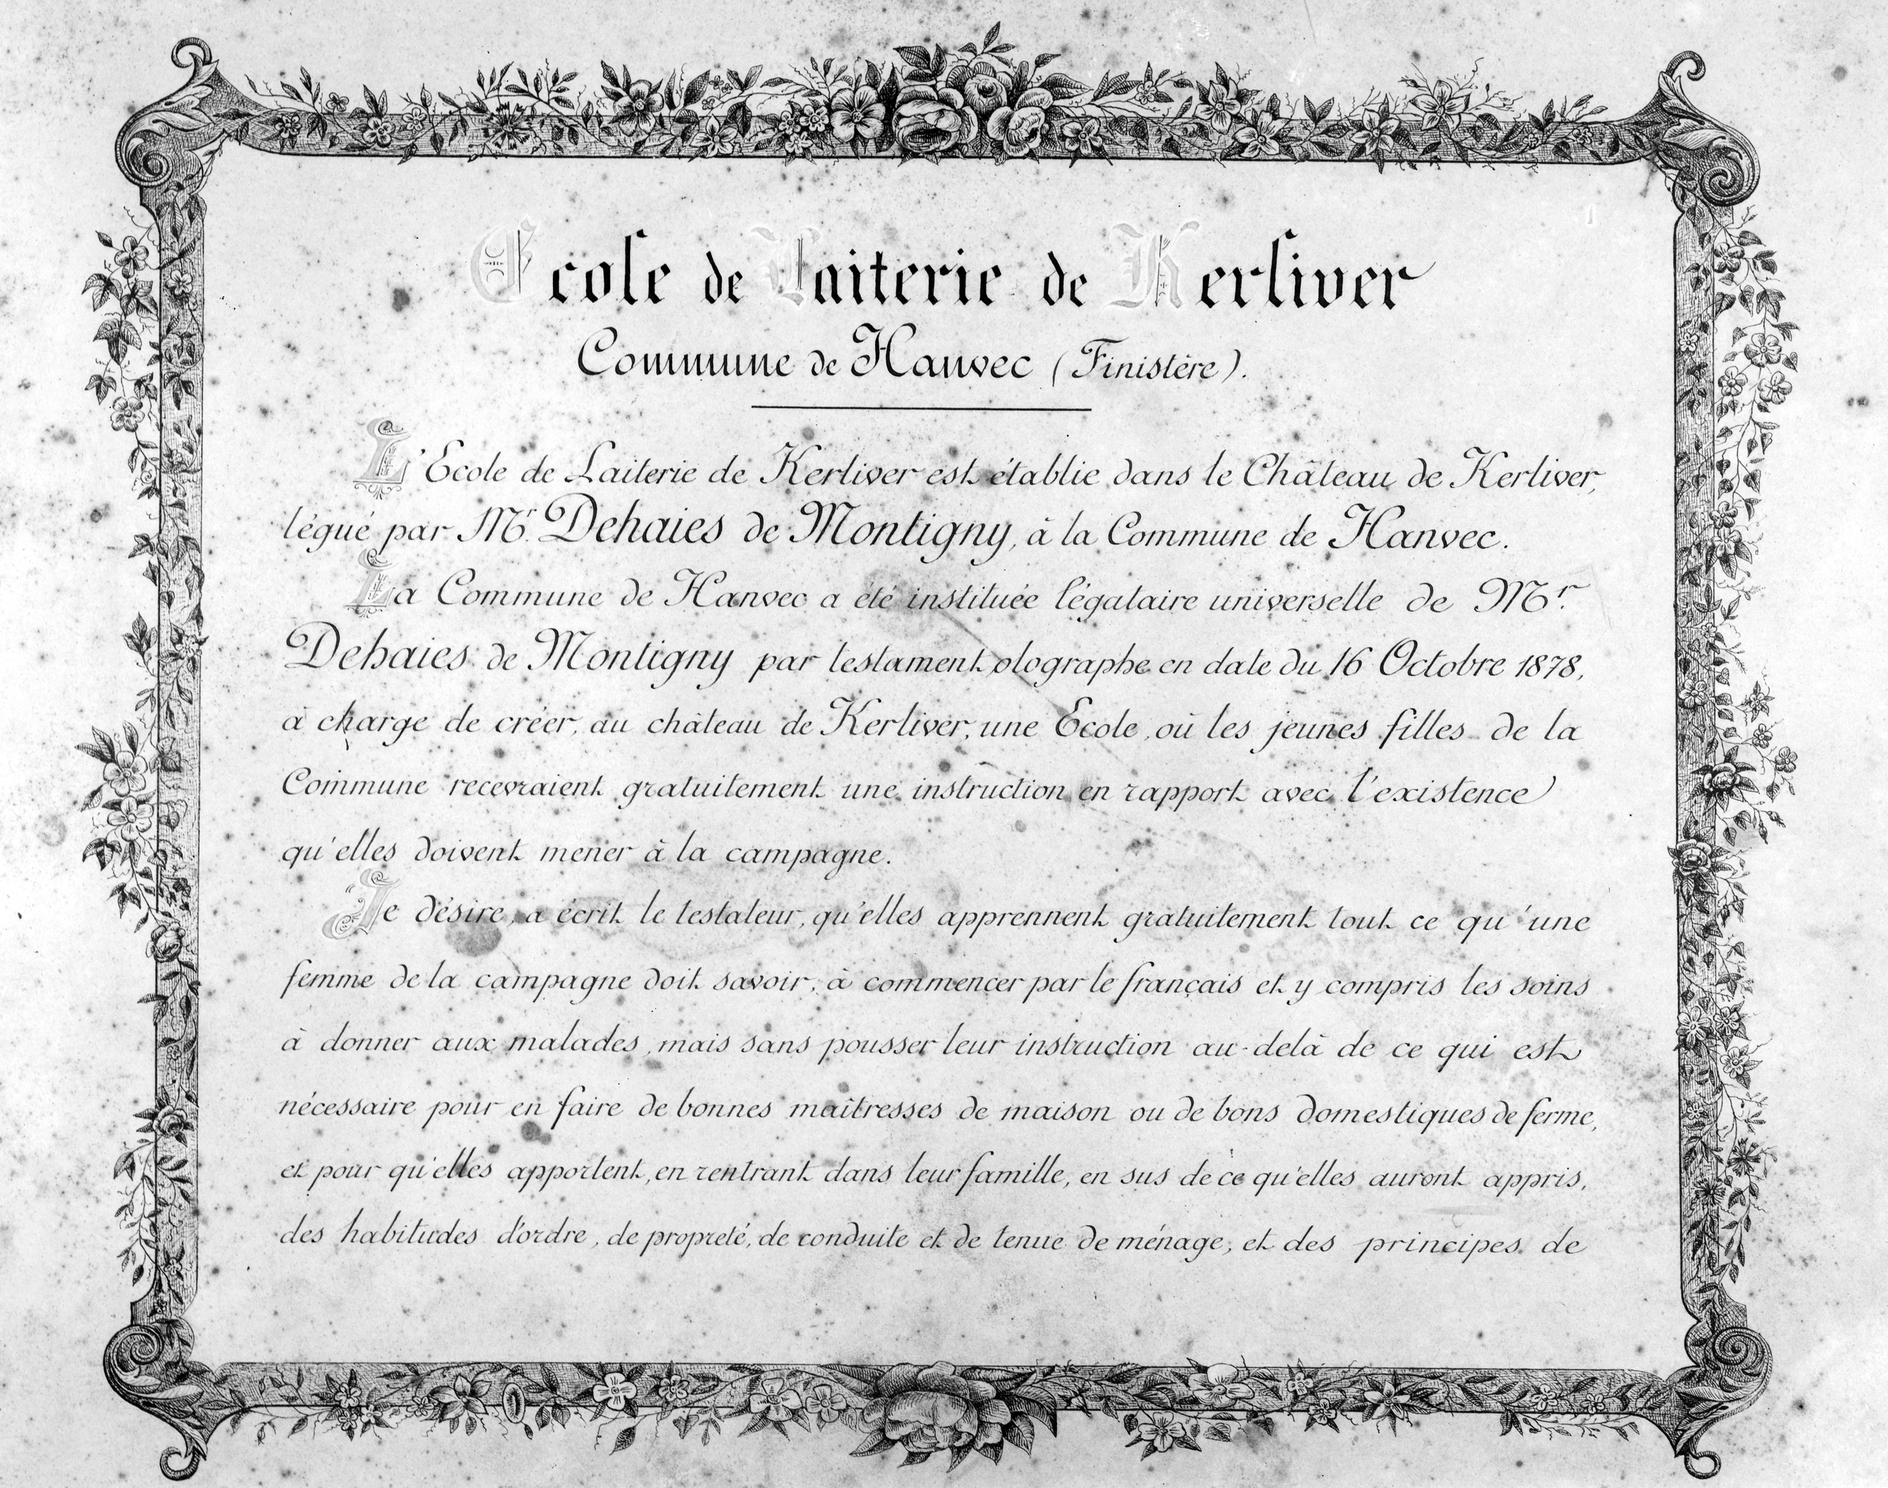 Ecole de Laiterie de Kerliver
Commune de Hanvec (Finistère).
L'Ecole de Laiterie de Kerliver est établie dans le Château de Kerliver,
légué par Mr. Dehaies de Montigny, à la Commune de Hanvec.
La Commune de Hanvec a été instituée légataire universelle de Mr.
Dehaies de Montigny par testament olographe en date du 16 Octobre 1878,
à charge de créer, au château de Kerliver, une Ecole, où les jeunes filles de la
Commune recevraient gratuitement une instruction en rapport avec l'existence
qu'elles doivent mener à la campagne.
Je désire, a écrit le testateur, qu'elles apprennent gratuitement tout ce qu'une
femme de la campagne doit savoir, à commencer par le français et y compris les soins
à donner aux malades, mais sans pousser leur instruction au-delà de ce qui est
nécessaire pour en faire de bonnes maîtresses de maison ou de bons domestiques de ferme,
et pour qu'elles apportent, en rentrant dans leur famille, en sus de ce qu'elles auront appris,
des habitudes d'ordre, de propreté, de conduite et de tenue de ménage, et des principes de